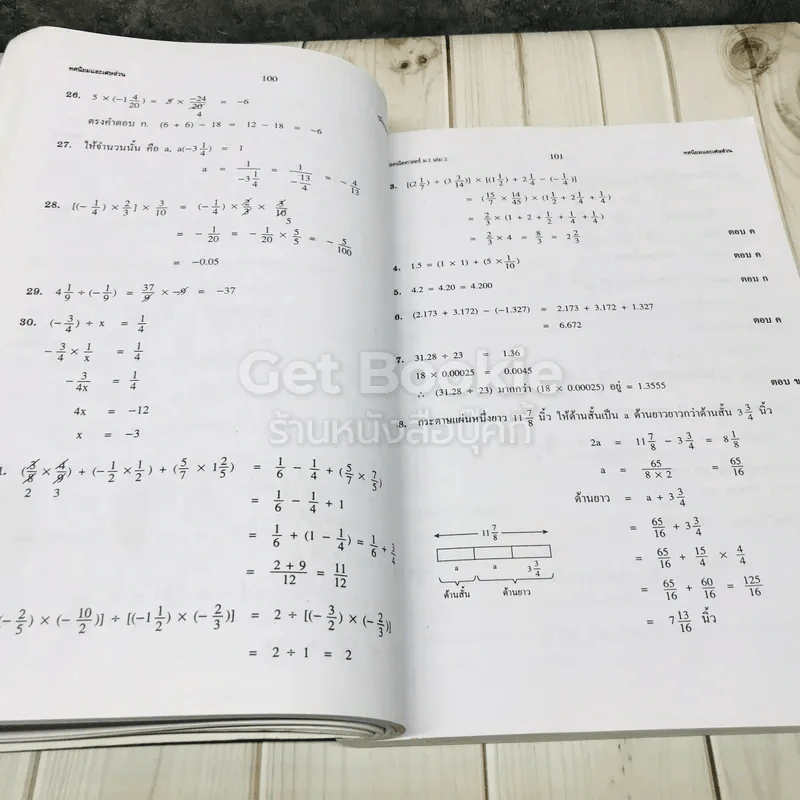 ทศนิยมและเศษส่วน 100
26. 5 × (-1 4/20) = 5 × -24/20 = -6
4
ตรงคำตอบ ก. (6 + 6) - 18 = 12 - 18 = -6
27. ให้จำนวนนั้น คือ a, a(-3 1/4) = 1
a = 1/(-3 1/4) = 1/(-13/4) = -4/13
28. [(-1/4) × 2/3] × 3/10 = (-1/4) × 2/3 × 3/10
5
= -1/20 = -1/20 × 5/5 = -5/100
= -0.05
29. 4 1/9 ÷ (-1/9) = 37/9 × -9 = -37
30. (-3/4) ÷ x = 1/4
-3/4 × 1/x = 1/4
-3/4x = 1/4
4x = -12
x = -3
1. (3/8 × 4/9) + (-1/2 × 1/2) + (5/7 × 1 2/5) = 1/6 - 1/4 + (5/7 × 7/5)
2 3
= 1/6 - 1/4 + 1
= 1/6 + (1 - 1/4) = 1/6 + 3/4
= (2 + 9)/12 = 11/12
(-2/5) × (-10/2)] ÷ [(-1 1/2) × (-2/3)] = 2 ÷ [(-3/2) × (-2/3)]
= 2 ÷ 1 = 2
คณิตศาสตร์ ม.1 เล่ม 2 101 ทศนิยมและเศษส่วน
3. [(2 1/7) ÷ (3 3/14)] × [(1 1/2) + 2 1/4 - (-1/4)]
= (15/7 × 14/45) × (1 1/2 + 2 1/4 + 1/4)
= 2/3 × (1 + 2 + 1/2 + 1/4 + 1/4)
= 2/3 × 4 = 8/3 = 2 2/3 ตอบ ค
4. 1.5 = (1 × 1) + (5 × 1/10) ตอบ ค
5. 4.2 = 4.20 = 4.200 ตอบ ก
6. (2.173 + 3.172) - (-1.327) = 2.173 + 3.172 + 1.327
= 6.672 ตอบ ค
7. 31.28 ÷ 23 = 1.36
18 × 0.00025 = 0.0045
∴ (31.28 ÷ 23) มากกว่า (18 × 0.00025) อยู่ = 1.3555 ตอบ ข
8. กระดาษแผ่นหนึ่งยาว 11 7/8 นิ้ว ให้ด้านสั้นเป็น a ด้านยาวยาวกว่าด้านสั้น 3 3/4 นิ้ว
2a = 11 7/8 - 3 3/4 = 8 1/8
a = 65/(8 × 2) = 65/16
ด้านยาว = a + 3 3/4
= 65/16 + 3 3/4
= 65/16 + 15/4 × 4/4
= 65/16 + 60/16 = 125/16
= 7 13/16 นิ้ว
11 7/8
a a 3 3/4
ด้านสั้น ด้านยาว
Get Bookie
ร้านหนังสือบุ๊คกี้